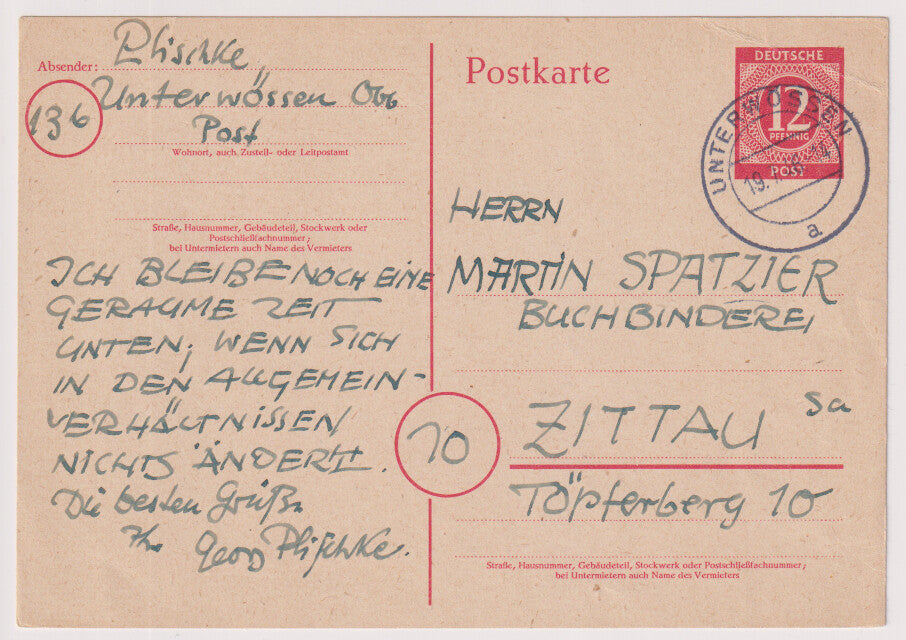 Absender: Plischke
136 Unterwössen Obb
Post
Wohnort, auch Zustell- oder Leitpostamt
Straße, Hausnummer, Gebäudeteil, Stockwerk oder
Postschließfachnummer;
bei Untermietern auch Name des Vermieters
ICH BLEIBE NOCH EINE
GERAUME ZEIT
UNTEN, WENN SICH
IN DEN ALLGEMEIN-
VERHÄLTNISSEN
NICHTS ÄNDERT.
Die besten Grüße
Ihr Georg Plischke.
Postkarte
DEUTSCHE
12
PFENNIG
POST
UNTERWÖSSEN
a
HERRN
MARTIN SPATZIER
BUCHBINDEREI
10 ZITTAU Sa
Töpferberg 10
Straße, Hausnummer, Gebäudeteil, Stockwerk oder Postschließfachnummer;
bei Untermietern auch Name des Vermieters